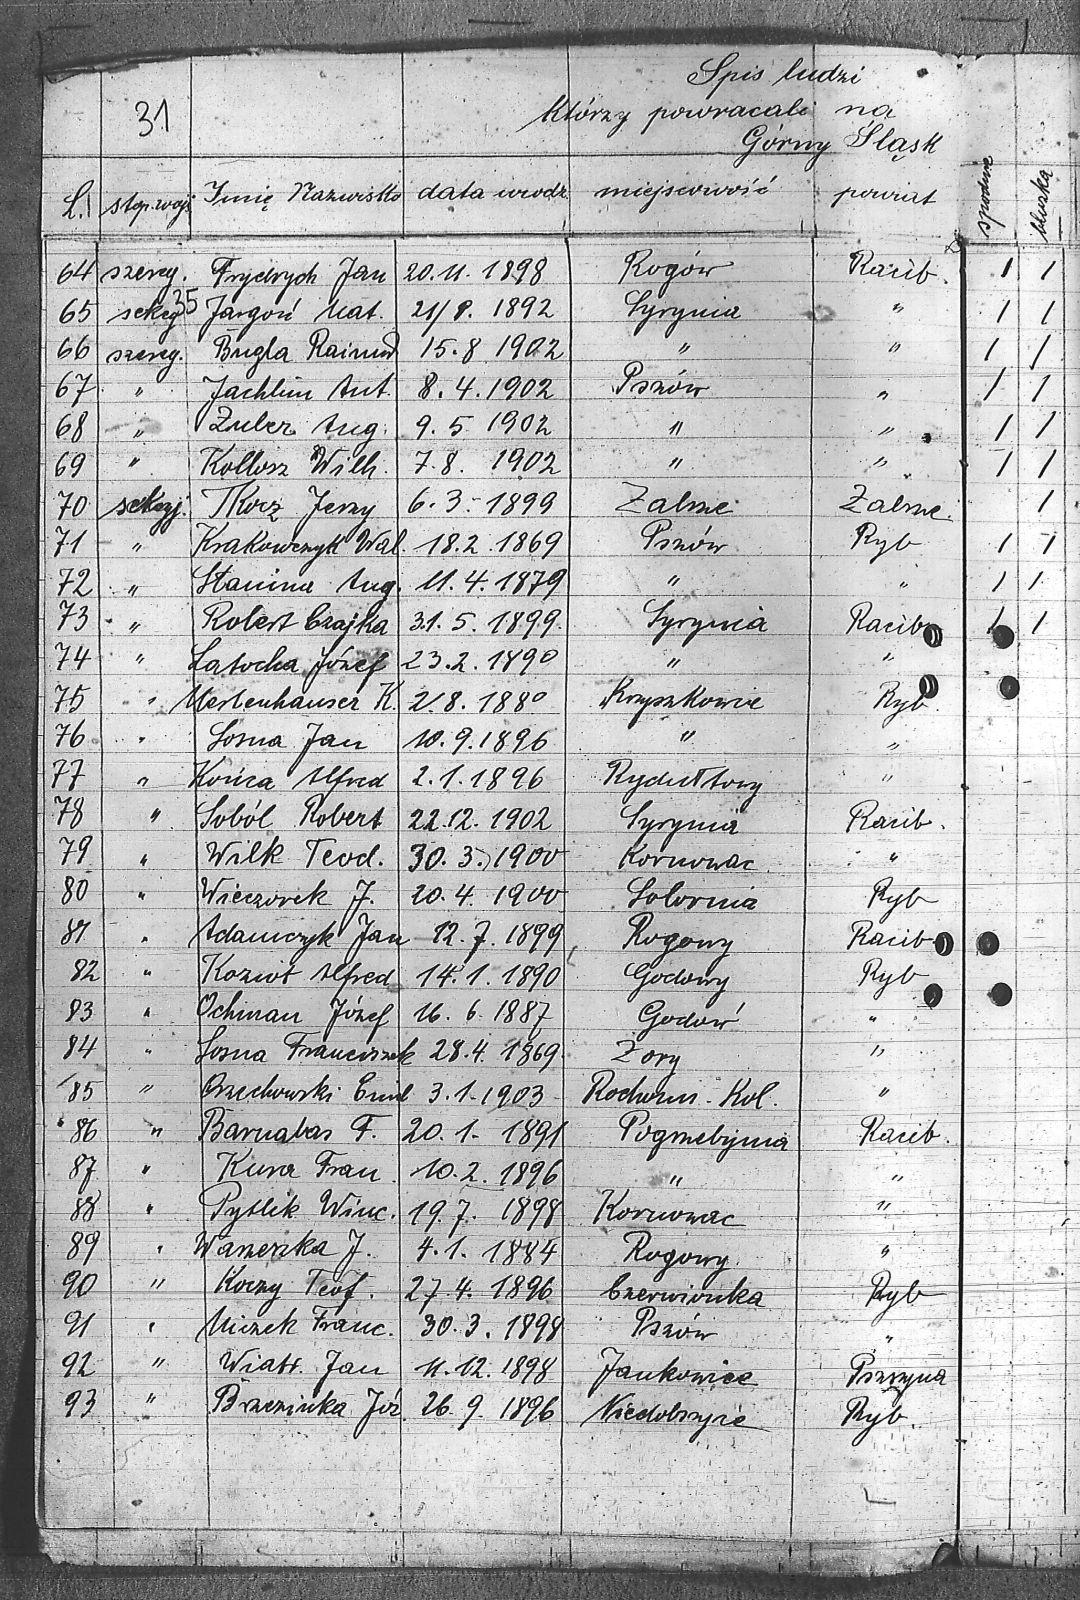 31
Spis ludzi
którzy powracali na
Górny Śląsk
L. stop. wojs Imię Nazwisko data urodz. miejscowość powiat spodnie bluzka
64 szereg. Frydrych Jan 20.11.1898 Rogów Racib. 1 1
65 sekcyj 35 Jargoń Mat. 21/8. 1892 Syrynia " 1 1
66 szereg. Bugla Raimund 15.8 1902 " " 1 1
67 " Jachlim Ant. 8.4.1902 Pszów " 1 1
68 " Zuber Aug. 9.5 1902 " " 1 1
69 " Kollosz Wilh. 7.8. 1902 " " 1 1
70 sekcyj. Tkocz Jerzy 6.3.1899 Zabrze Zabrze. 1
71 " Krakowczyk Wal. 18.2.1869 Pszów Ryb 1 1
72 " Stanina Aug. 11.4.1879 " " 1 1
73 " Robert Czajka 31.5.1899. Syrynia Racib. 1 1
74 " Latocha Józef 23.2.1890 " "
75 " Mertenhauser K. 2.8.1880 Krzyszkowice Ryb.
76 " Sosna Jan 10.9.1896 " "
77 " Końca Alfred 2.1.1896 Rydułtowy "
78 " Soból Robert 22.12.1902 Syrynia Racib.
79 " Wilk Teod. 30.3.1900 Kornowac "
80 " Wieczorek J. 20.4.1900 Ryb
81 " Adamczyk Jan 12.7.1899 Rogowy Racib
82 " Kozioł Alfred 14.1.1890 Godowy Ryb
83 " Ochman Józef 16.6.1887 Godów "
84 " Sosna Franciszek 28.4.1869. Żory "
85 " Orzechowski Emil 3.1.1903 Kol. "
86 " Barnabas F. 20.1.1891 Pogrzebynia Racib.
87 " Kura Fran. 10.2.1896 " "
88 " Pytlik Winc. 19.7.1898 Kornowac "
89 " J. 4.1.1884 Rogowy. "
90 " Koczy Teof. 27.4.1896 Czerwionka Ryb
91 " Miczek Franc. 30.3.1898 Pszów "
92 " Wiatr. Jan 11.12.1898 Jankowice Pszczyna
93 " Brzezinka Józ 26.9.1896 Niedobczyce Ryb.